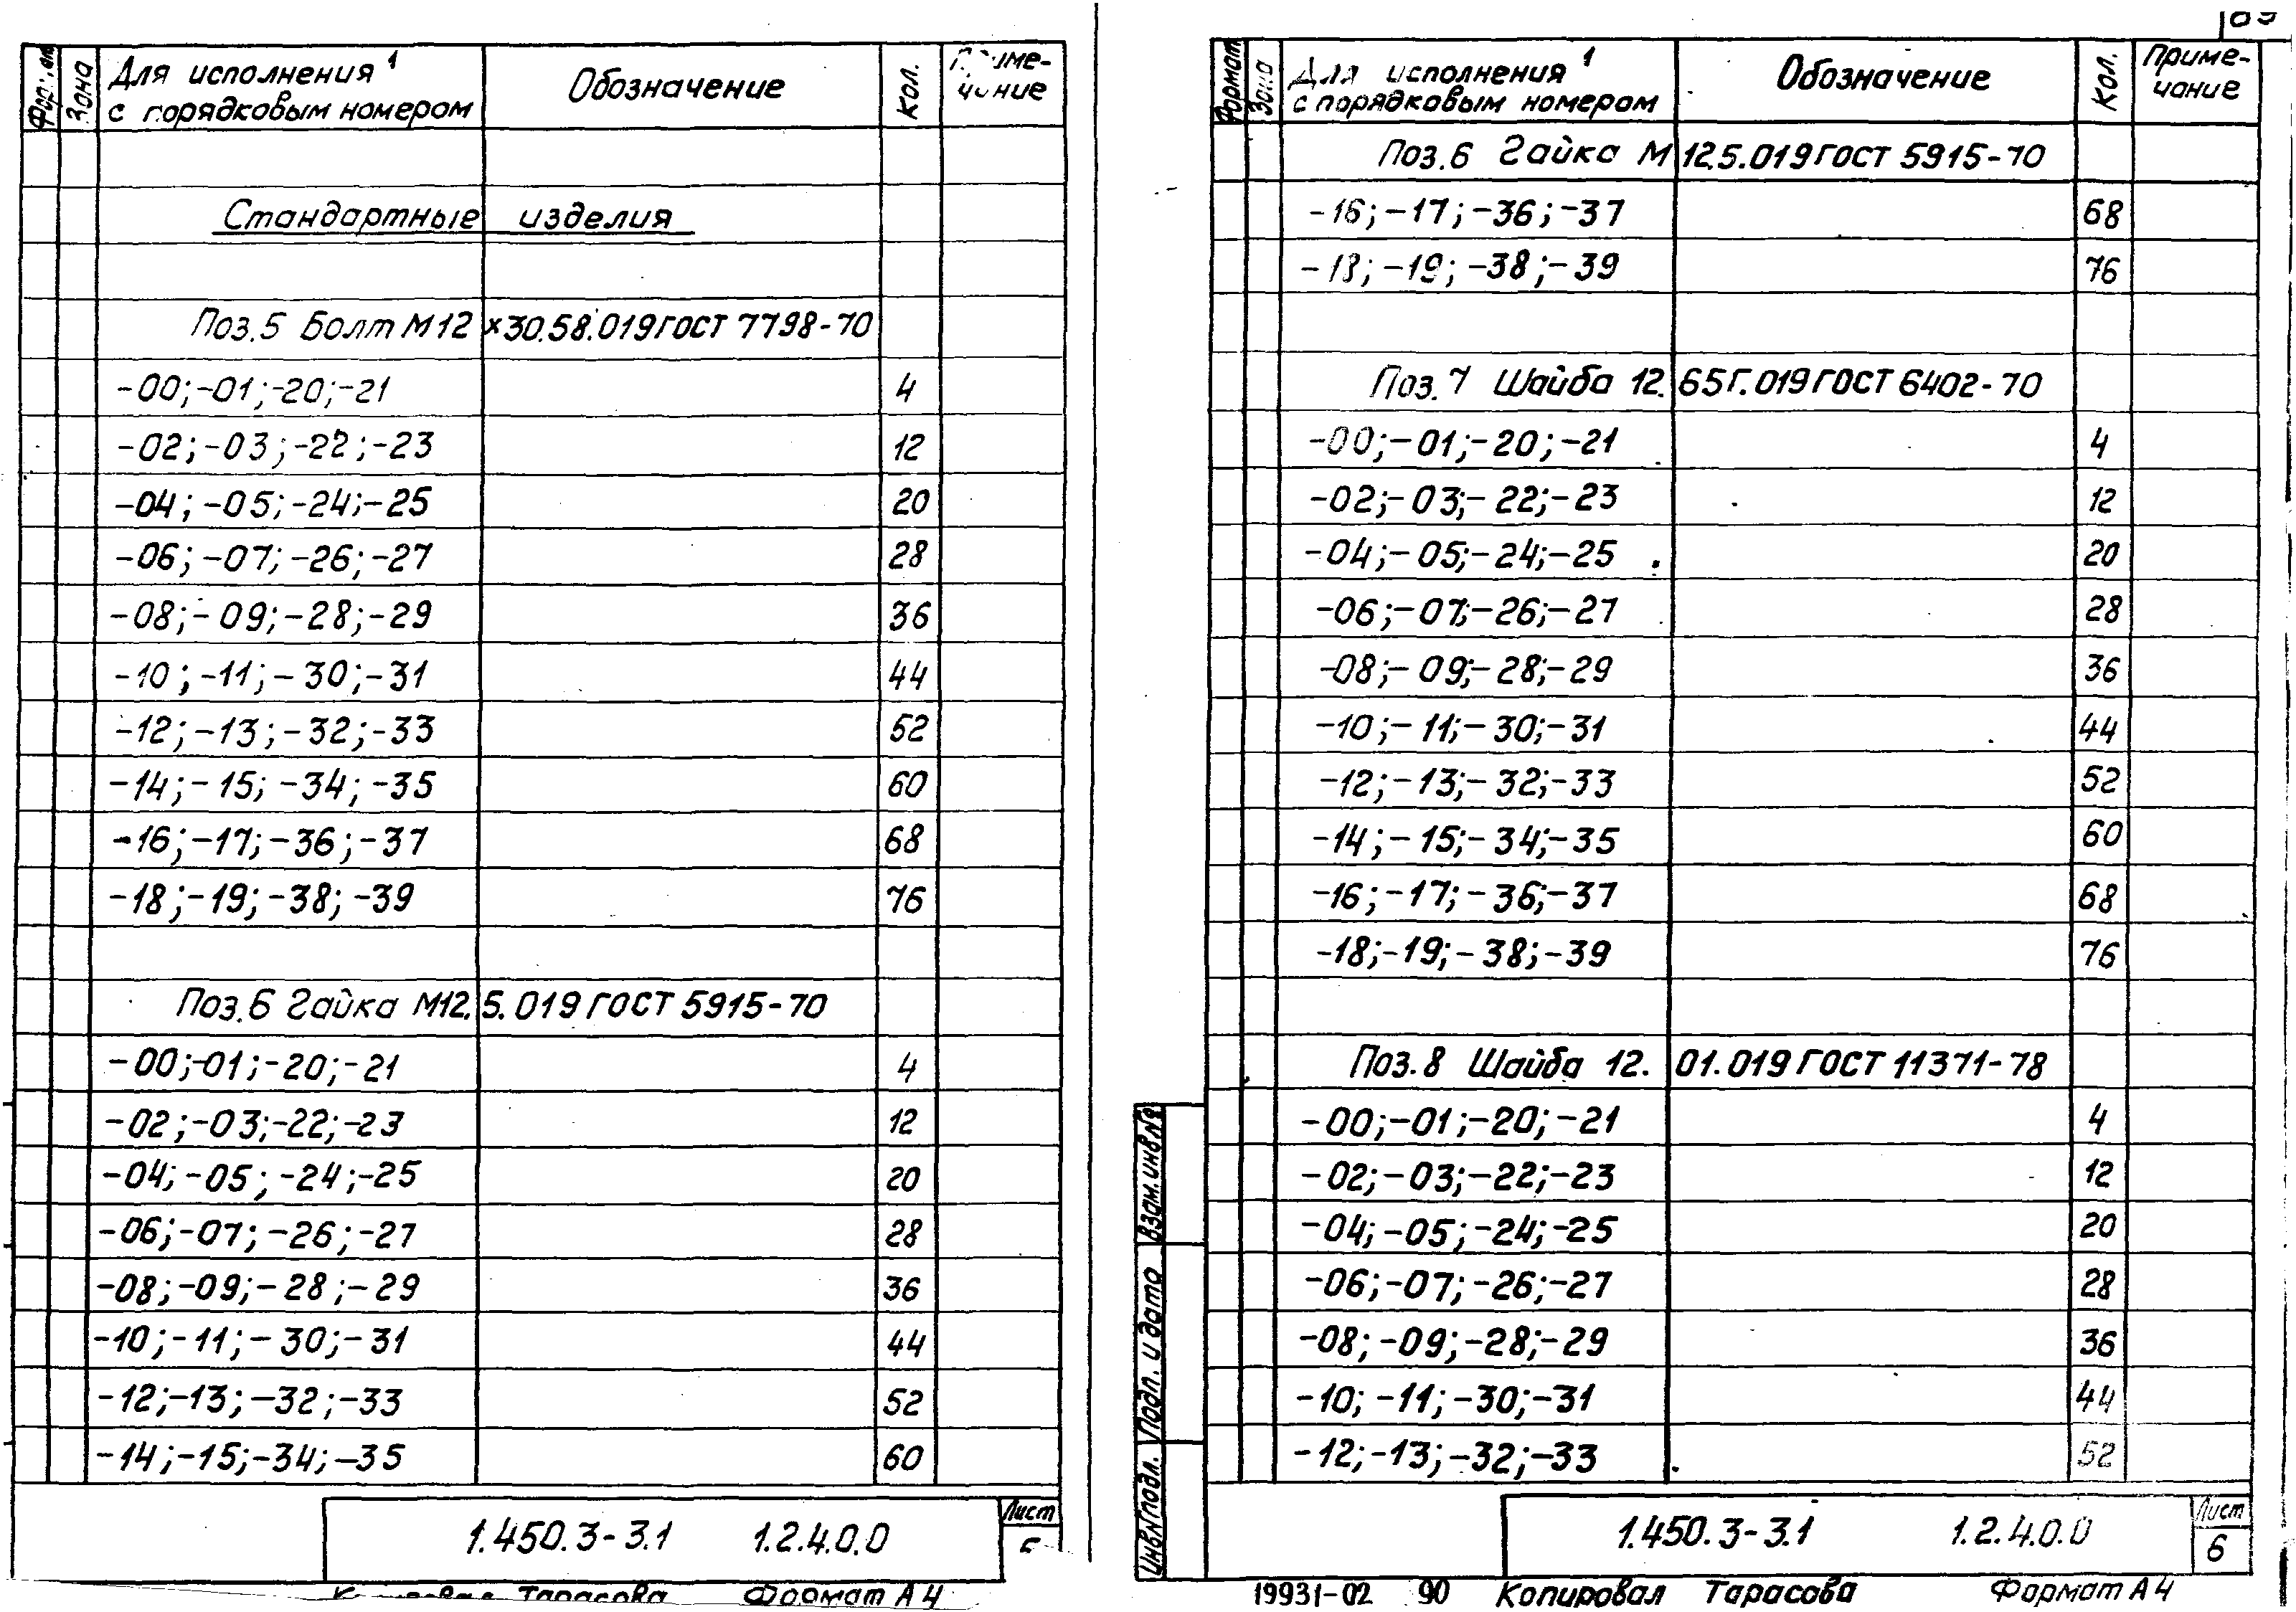 Зона
Для исполнения 1
с порядковым номером
Обозначение
Кол.
Стандартные изделия
Поз.5 Болт М12×30.58.019 ГОСТ 7798-70
-00;-01;-20;-21 4
-02;-03;-22;-23 12
-04;-05;-24;-25 20
-06;-07;-26;-27 28
-08;-09;-28;-29 36
-10;-11;-30;-31 44
-12;-13;-32;-33 52
-14;-15;-34;-35 60
-16;-17;-36;-37 68
-18;-19;-38;-39 76
Поз.6 Гайка М12.5.019 ГОСТ 5915-70
-00;-01;-20;-21 4
-02;-03;-22;-23 12
-04;-05;-24;-25 20
-06;-07;-26;-27 28
-08;-09;-28;-29 36
-10;-11;-30;-31 44
-12;-13;-32;-33 52
-14;-15;-34;-35 60
1.450.3-3.1 1.2.4.0.0
Лист
Тарасова Формат А4
Формат
Зона
Для исполнения 1
с порядковым номером
Обозначение
Кол.
Приме-
чание
Поз.6 Гайка М12.5.019 ГОСТ 5915-70
-16;-17;-36;-37 68
-18;-19;-38;-39 76
Поз.7 Шайба 12.65Г.019 ГОСТ 6402-70
-00;-01;-20;-21 4
-02;-03;-22;-23 12
-04;-05;-24;-25 20
-06;-07;-26;-27 28
-08;-09;-28;-29 36
-10;-11;-30;-31 44
-12;-13;-32;-33 52
-14;-15;-34;-35 60
-16;-17;-36;-37 68
-18;-19;-38;-39 76
Поз.8 Шайба 12.01.019 ГОСТ 11371-78
-00;-01;-20;-21 4
-02;-03;-22;-23 12
-04;-05;-24;-25 20
-06;-07;-26;-27 28
-08;-09;-28;-29 36
-10;-11;-30;-31 44
-12;-13;-32;-33 52
Взам.инв№
Подп. и дата
Инв№подл.
1.450.3-3.1 1.2.4.0.0
Лист
6
19931-02 90 Копировал Тарасова Формат А4